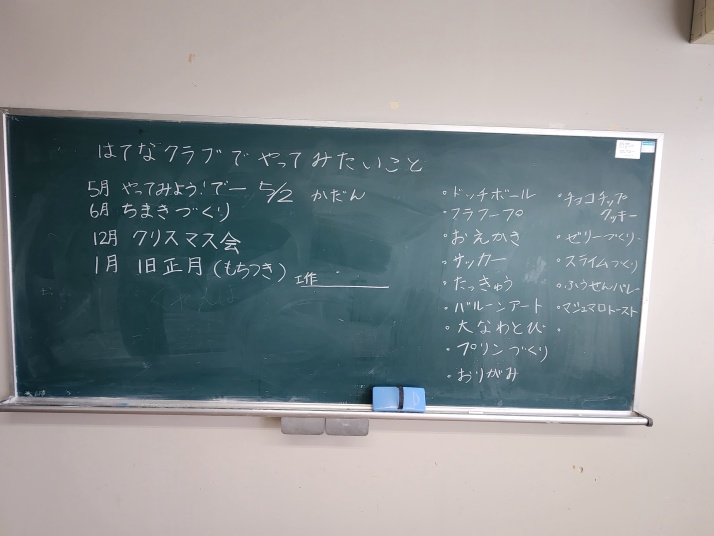 はてなクラブでやってみたいこと
5月 やってみよう!でー 5/2 かだん
6月 ちまきづくり
12月 クリスマス会
1月 旧正月(もちつき)
工作
・ドッチボール
・フラフープ
・おえかき
・サッカー
・たっきゅう
・バルーンアート
・大なわとび
・プリンづくり
・おりがみ
・チョコチップ
クッキー
・ゼリーづくり
・スライムづくり
・ふうせんバレー
・マシュマロトースト
・